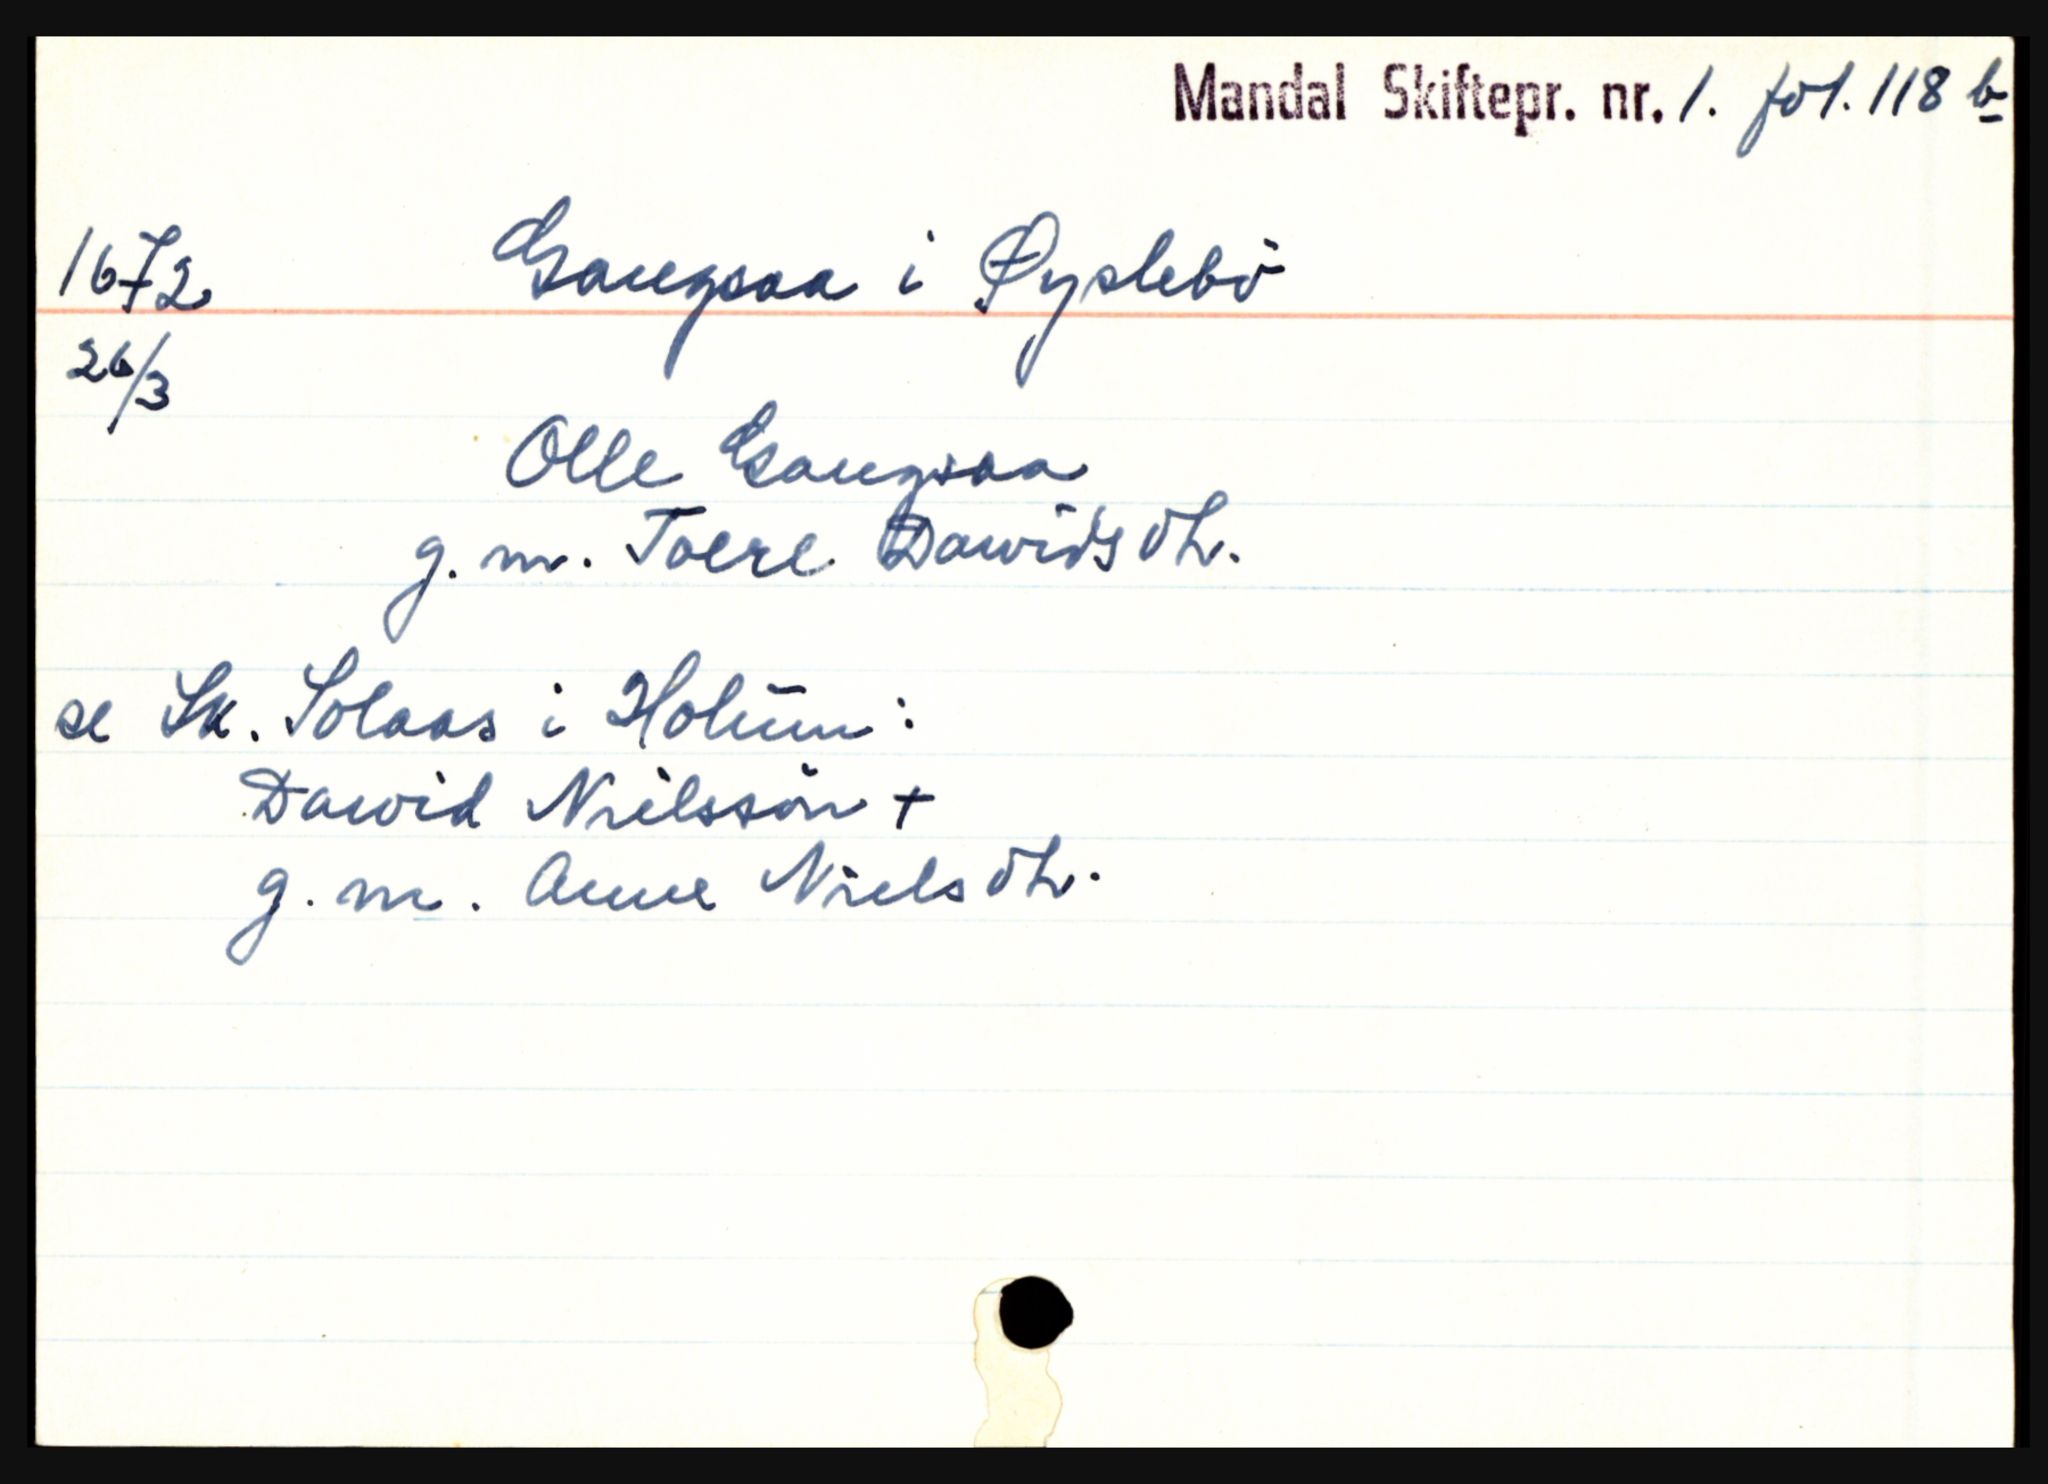 Mandal Skiftepr. nr. 1. fol. 118 b
1672 Gaugsaa i Øyslebö
26/3
Olle Gaugsaa
g. m. Toere Dawidsdtr.
se Sk. Solaas i Holum:
Dawid Nielssön +
g. m. Anne Nielsdtr.